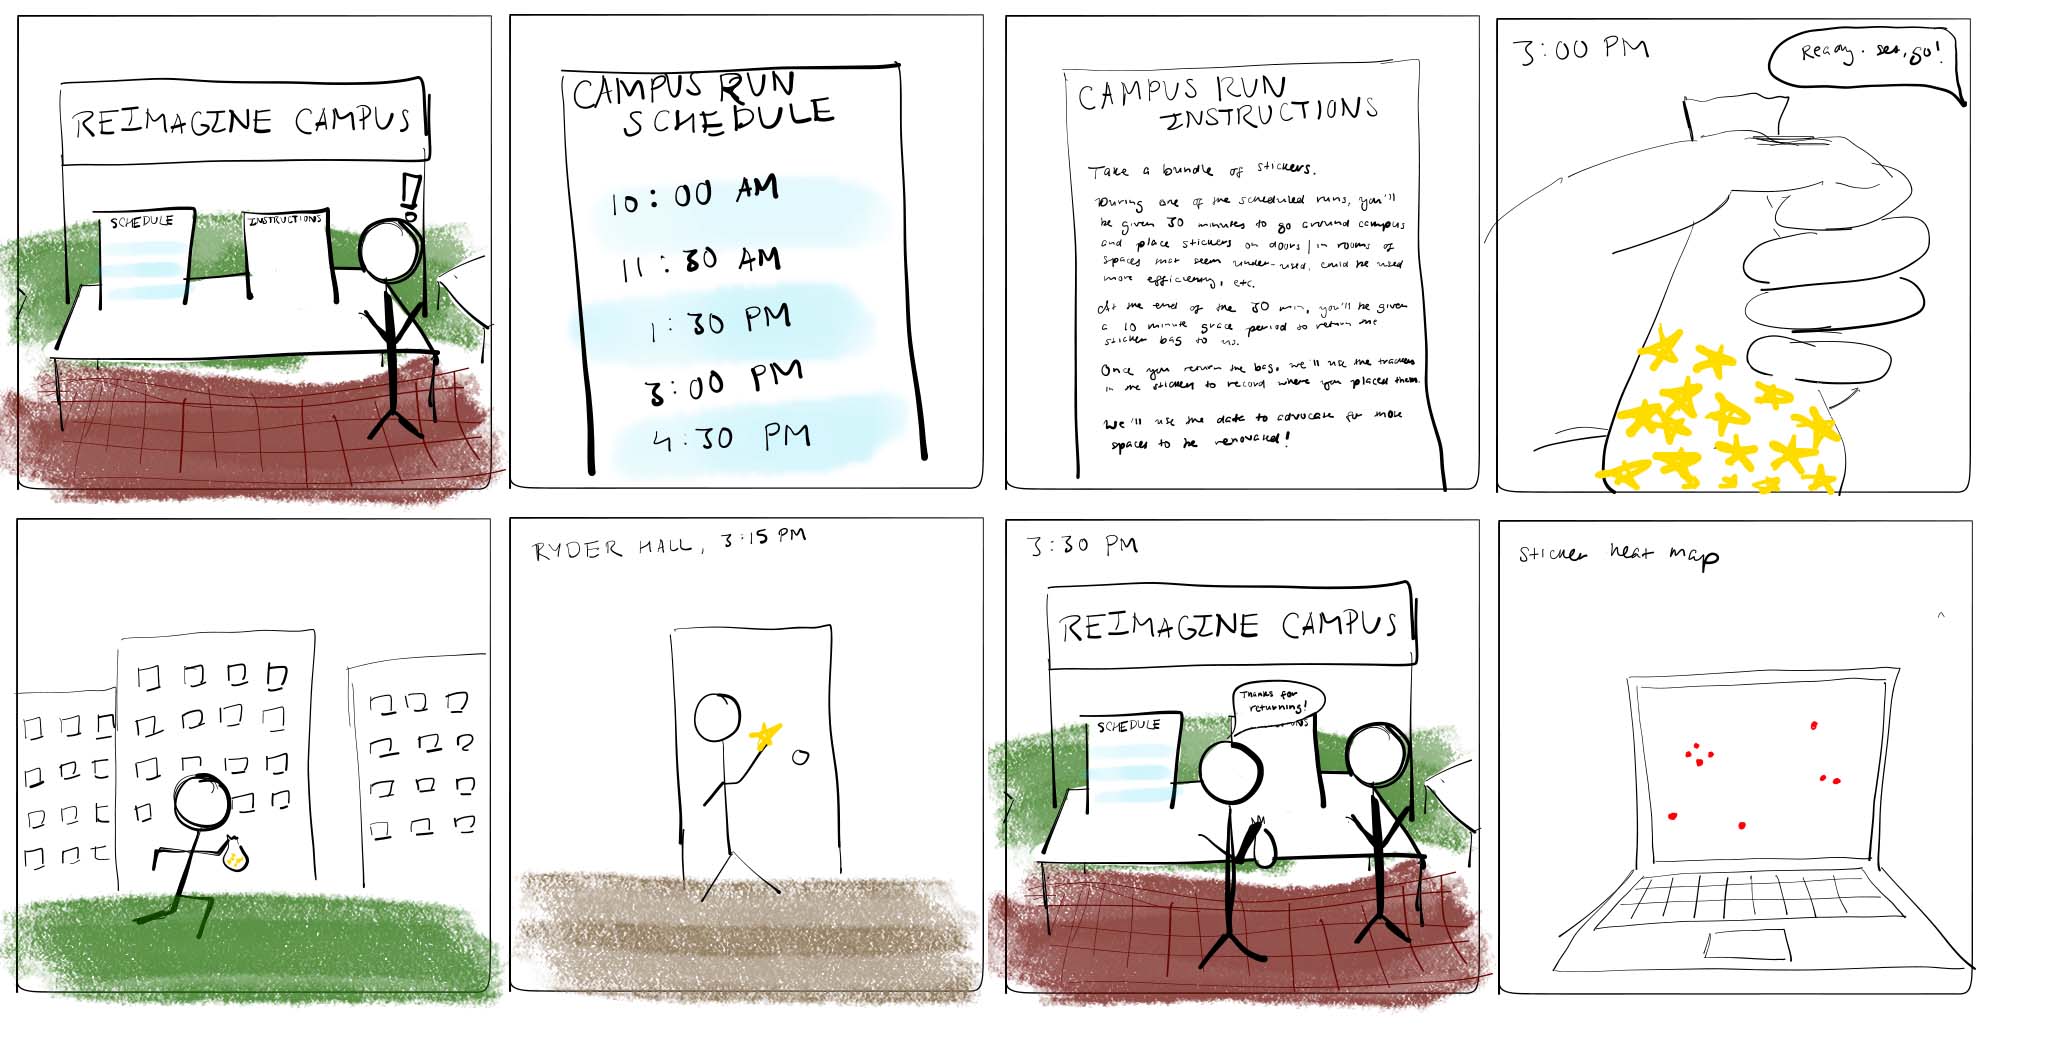 REIMAGINE CAMPUS
SCHEDULE
INSTRUCTIONS
!
CAMPUS RUN
SCHEDULE
10:00 AM
11:30 AM
1:30 PM
3:00 PM
4:30 PM
CAMPUS RUN
INSTRUCTIONS
Take a bundle of stickers.
During one of the scheduled runs, you'll
be given 30 minutes to go around campus
and place stickers on doors / in rooms of
spaces that seem under-used, could be used
more efficiency, etc.
At the end of the 30 min, you'll be given
a 10 minute grace period to return the
sticker bag to us.
Once you return the bag, we'll use the trackers
in the stickers to record where you placed them.
We'll use the data to advocate for more
spaces to be renovated!
3:00 PM
Ready. set, go!
RYDER HALL, 3:15 PM
3:30 PM
REIMAGINE CAMPUS
Thanks for
returning!
SCHEDULE
ONS
sticker heat map